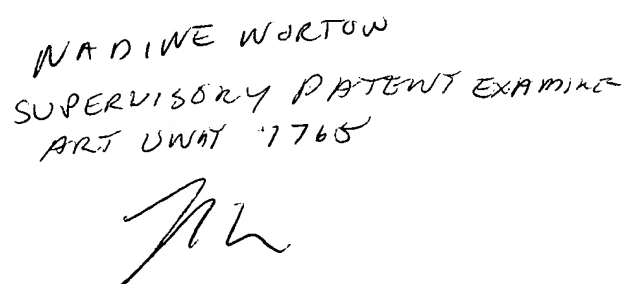 NADINE NORTON
SUPERVISORY PATENT EXAMINE
ART UNIT 1765